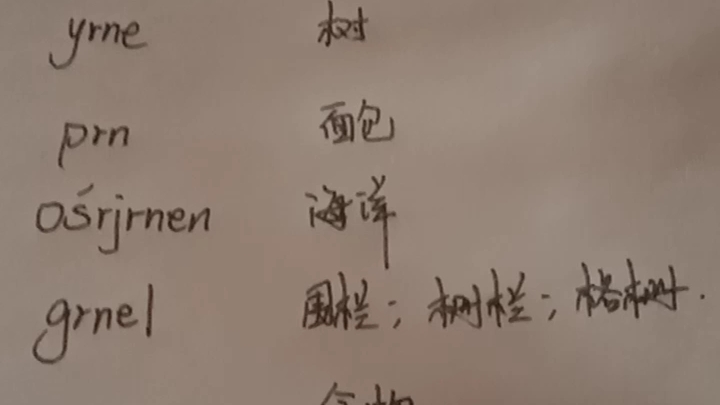 yrne 树
prn 面包
ośrjrnen 海洋
grnel 围栏；树栏；格树.